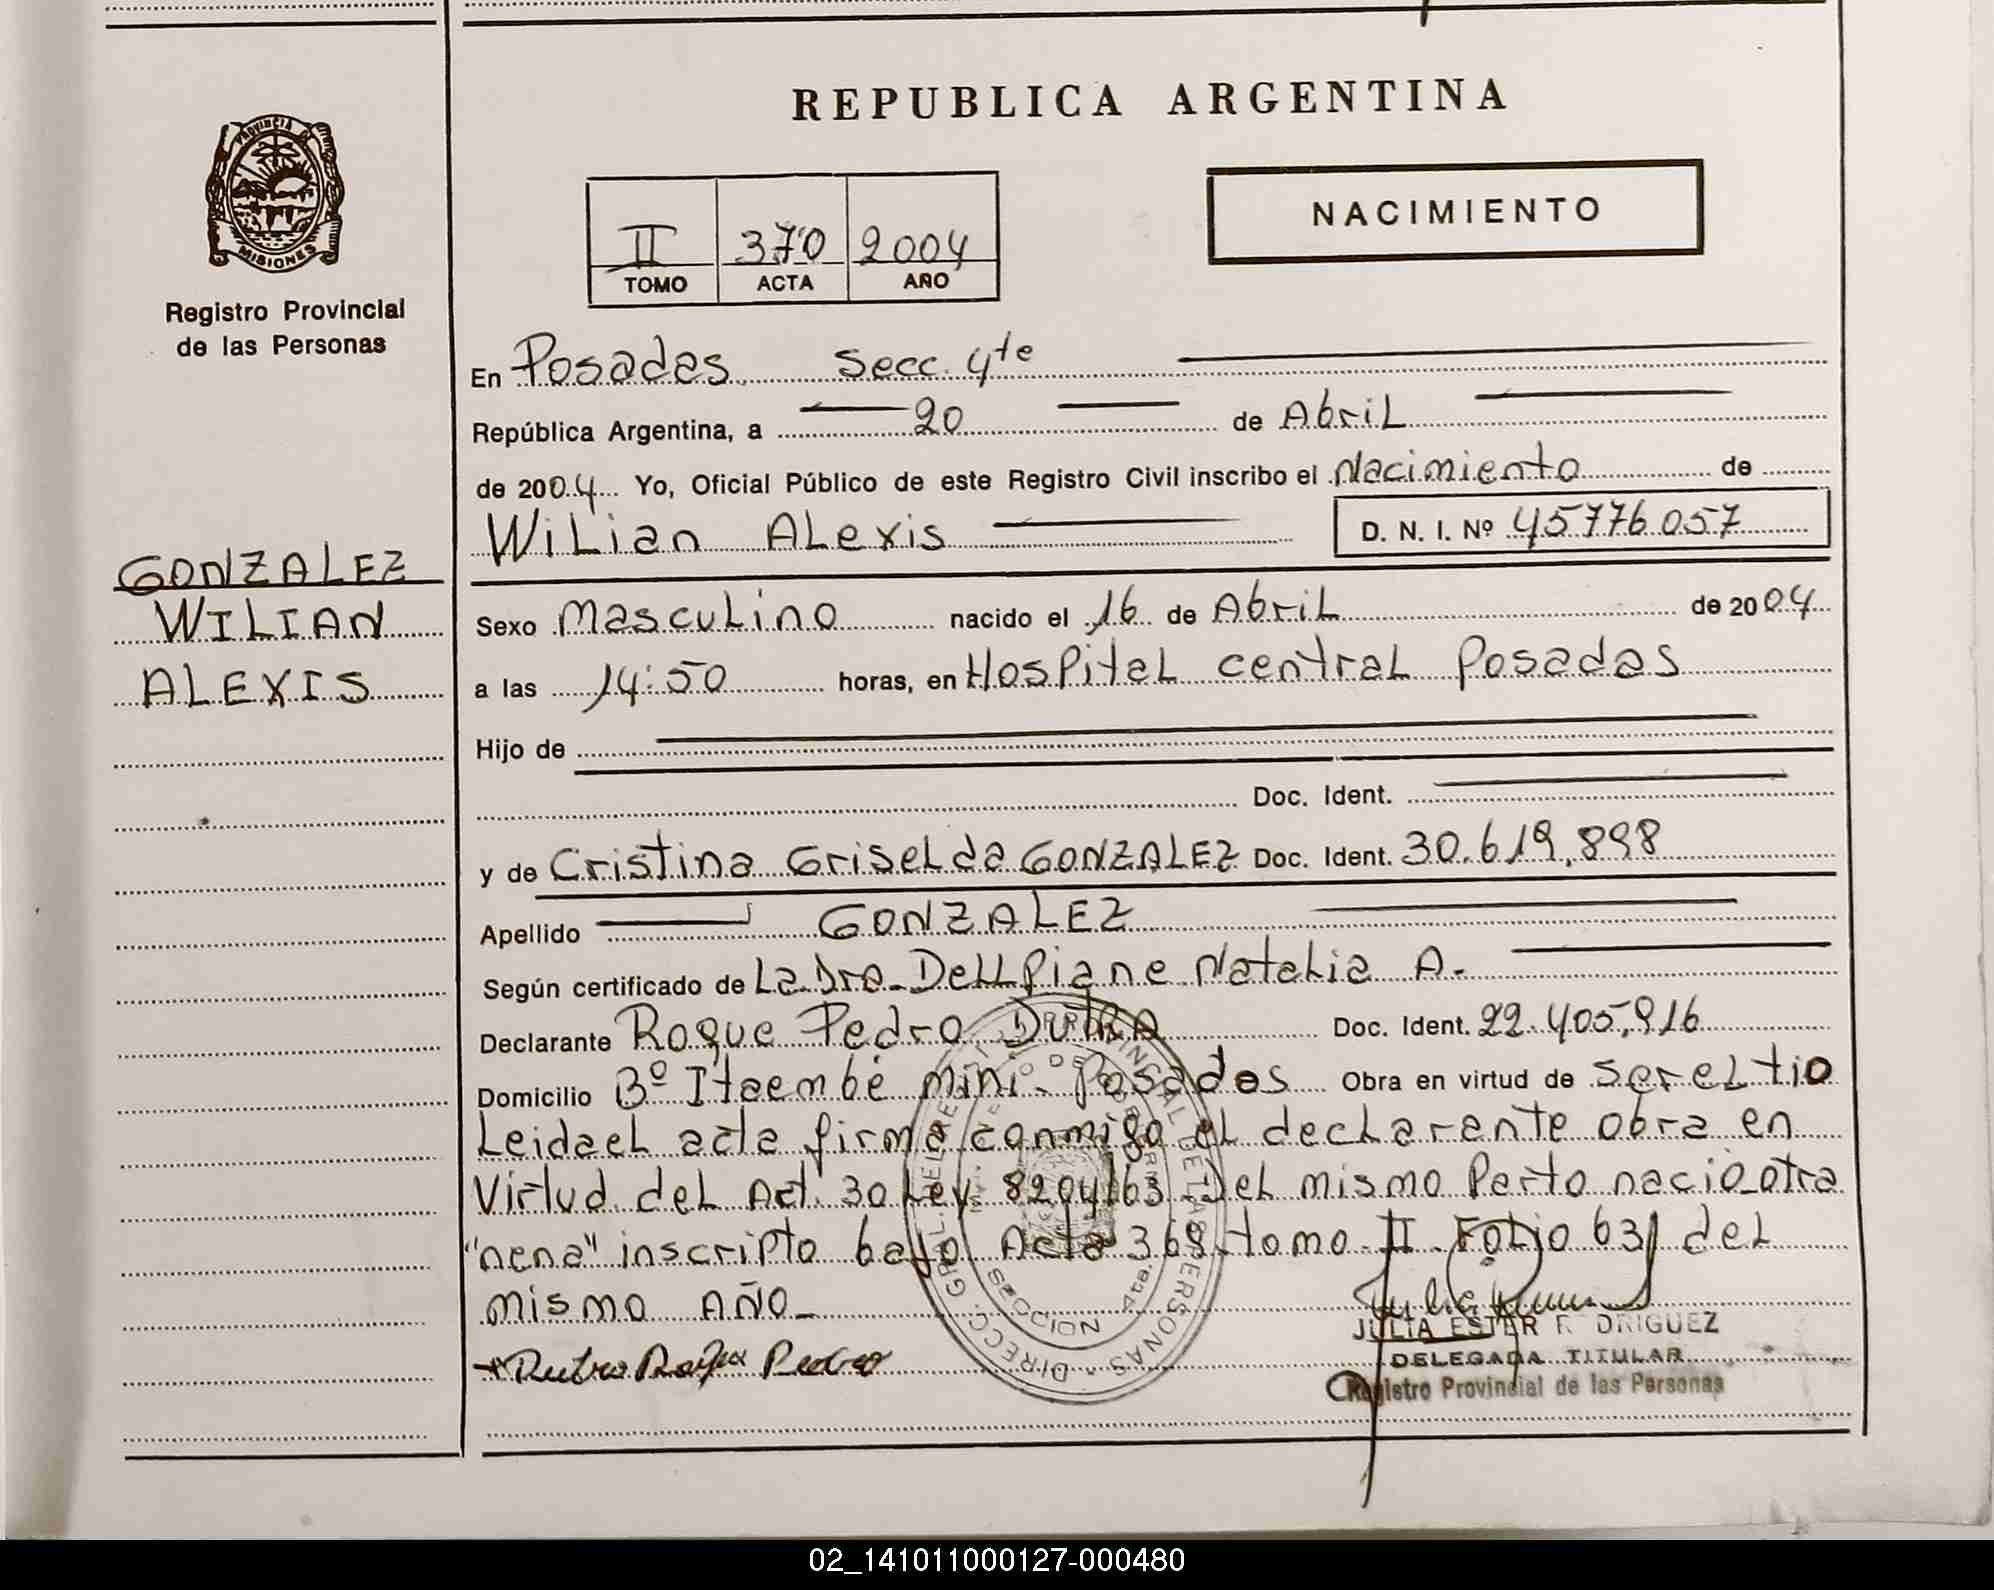 REPUBLICA ARGENTINA
PROVINCIA DE
MISIONES
Registro Provincial
de las Personas
II 370 2004
TOMO ACTA AÑO
NACIMIENTO
En Posadas Secc. 4te
República Argentina, a 20 de Abril
de 2004 Yo, Oficial Público de este Registro Civil inscribo el Nacimiento de
Wilian Alexis D. N. I. Nº 45776.057
GONZALEZ
WILIAN
ALEXIS
Sexo Masculino nacido el 16 de Abril de 2004
a las 14:50 horas, en Hospital central Posadas
Hijo de
Doc. Ident.
y de Cristina Griselda GONZALEZ Doc. Ident. 30.619.898
Apellido GONZALEZ
Según certificado de La Dra. Dellpiane Natalia A.
Declarante Roque Pedro Dutra Doc. Ident. 22.405.916
Domicilio Bº Itaembé mini - Posadas Obra en virtud de ser el tio
Leida el acta firma conmigo el declarante obra en
Virtud del Art. 30 Ley 8204/63 Del mismo Parto nacio otra
"nena" inscripto bajo Acta 368 tomo II Folio 63 del
mismo Año-
Pedro
JULIA ESTER RODRIGUEZ
DELEGADA TITULAR
Registro Provincial de las Personas
02_141011000127-000480